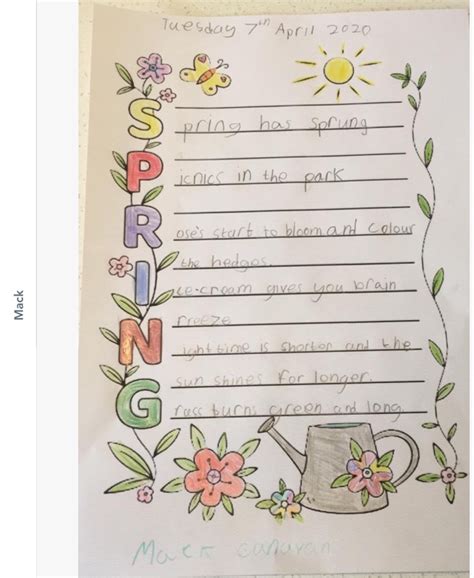 Mack
Tuesday 7th April 2020
Spring has sprung
Picnics in the park
Rose's start to bloom and colour
the hedges.
Ice-cream gives you brain
freeze
Night time is shorter and the
sun shines for longer.
Grass turns green and long.
Mack Canavan